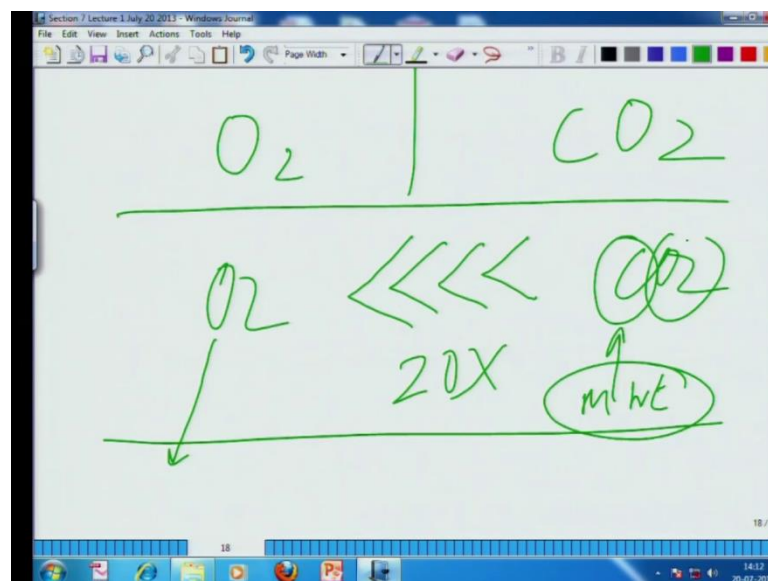 Section 7 Lecture 1 July 20 2013 - Windows Journal
File Edit View Insert Actions Tools Help
Page Width
B I
O2 CO2
O2 <<<< CO2
20X
m wt
18 /
18
14:12
20-07-20